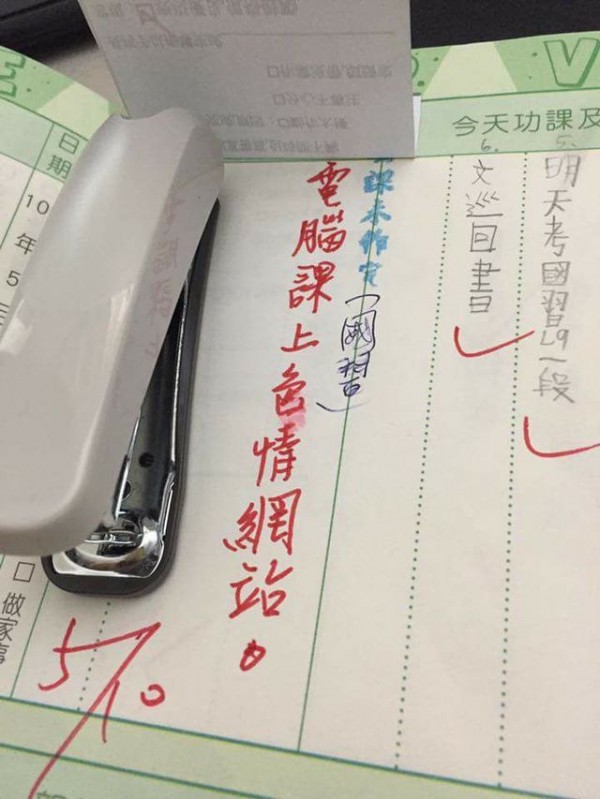 今天功課及
5. 明天考國習L9一段
6. 文巡回書
課未作完(國習)
電腦課上色情網站。
日期
10年5
□做家事
5/10